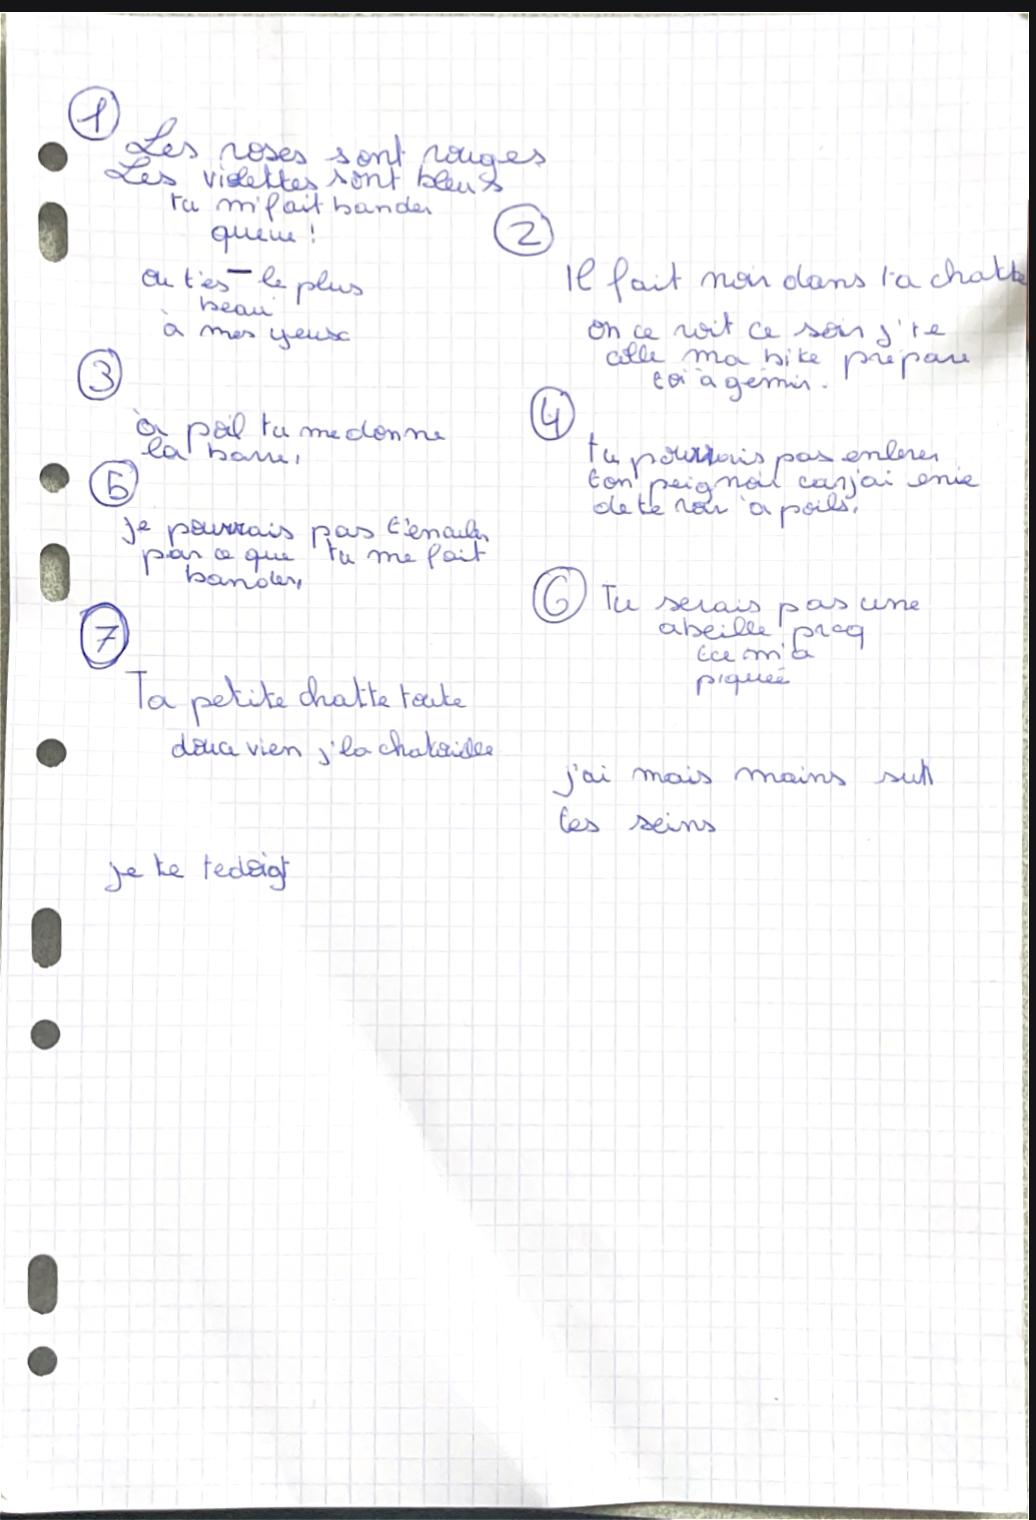 1
Les roses sont rouges
Les violettes sont bleus
tu m'fait bander
queue !
ou t'es le plus
beau
à mes yeux
2
Il fait noir dans ta chatte
on ce voit ce soir j'te
colle ma bite prépare
toi à gémir.
3
à poil tu me donne
la barre,
4
tu pourrais pas enlever
ton peignoir car j'ai enie
de te voir à poils.
5
je pourrais pas t'enculer
par ce que tu me fait
bander,
6
Tu serais pas une
abeille prcq
tce m'a
piquée
7
Ta petite chatte toute
douce vien j'la chatouille
j'ai mais mains sur
tes seins
je te tedoigt